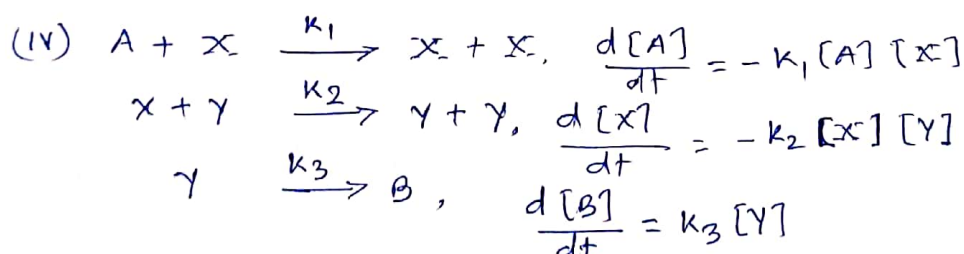 (IV) A + X —K1→ X + X, d[A]/dt = - K1 [A] [X]
X + Y —K2→ Y + Y, d[X]/dt = - K2 [X] [Y]
Y —K3→ B, d[B]/dt = K3 [Y]